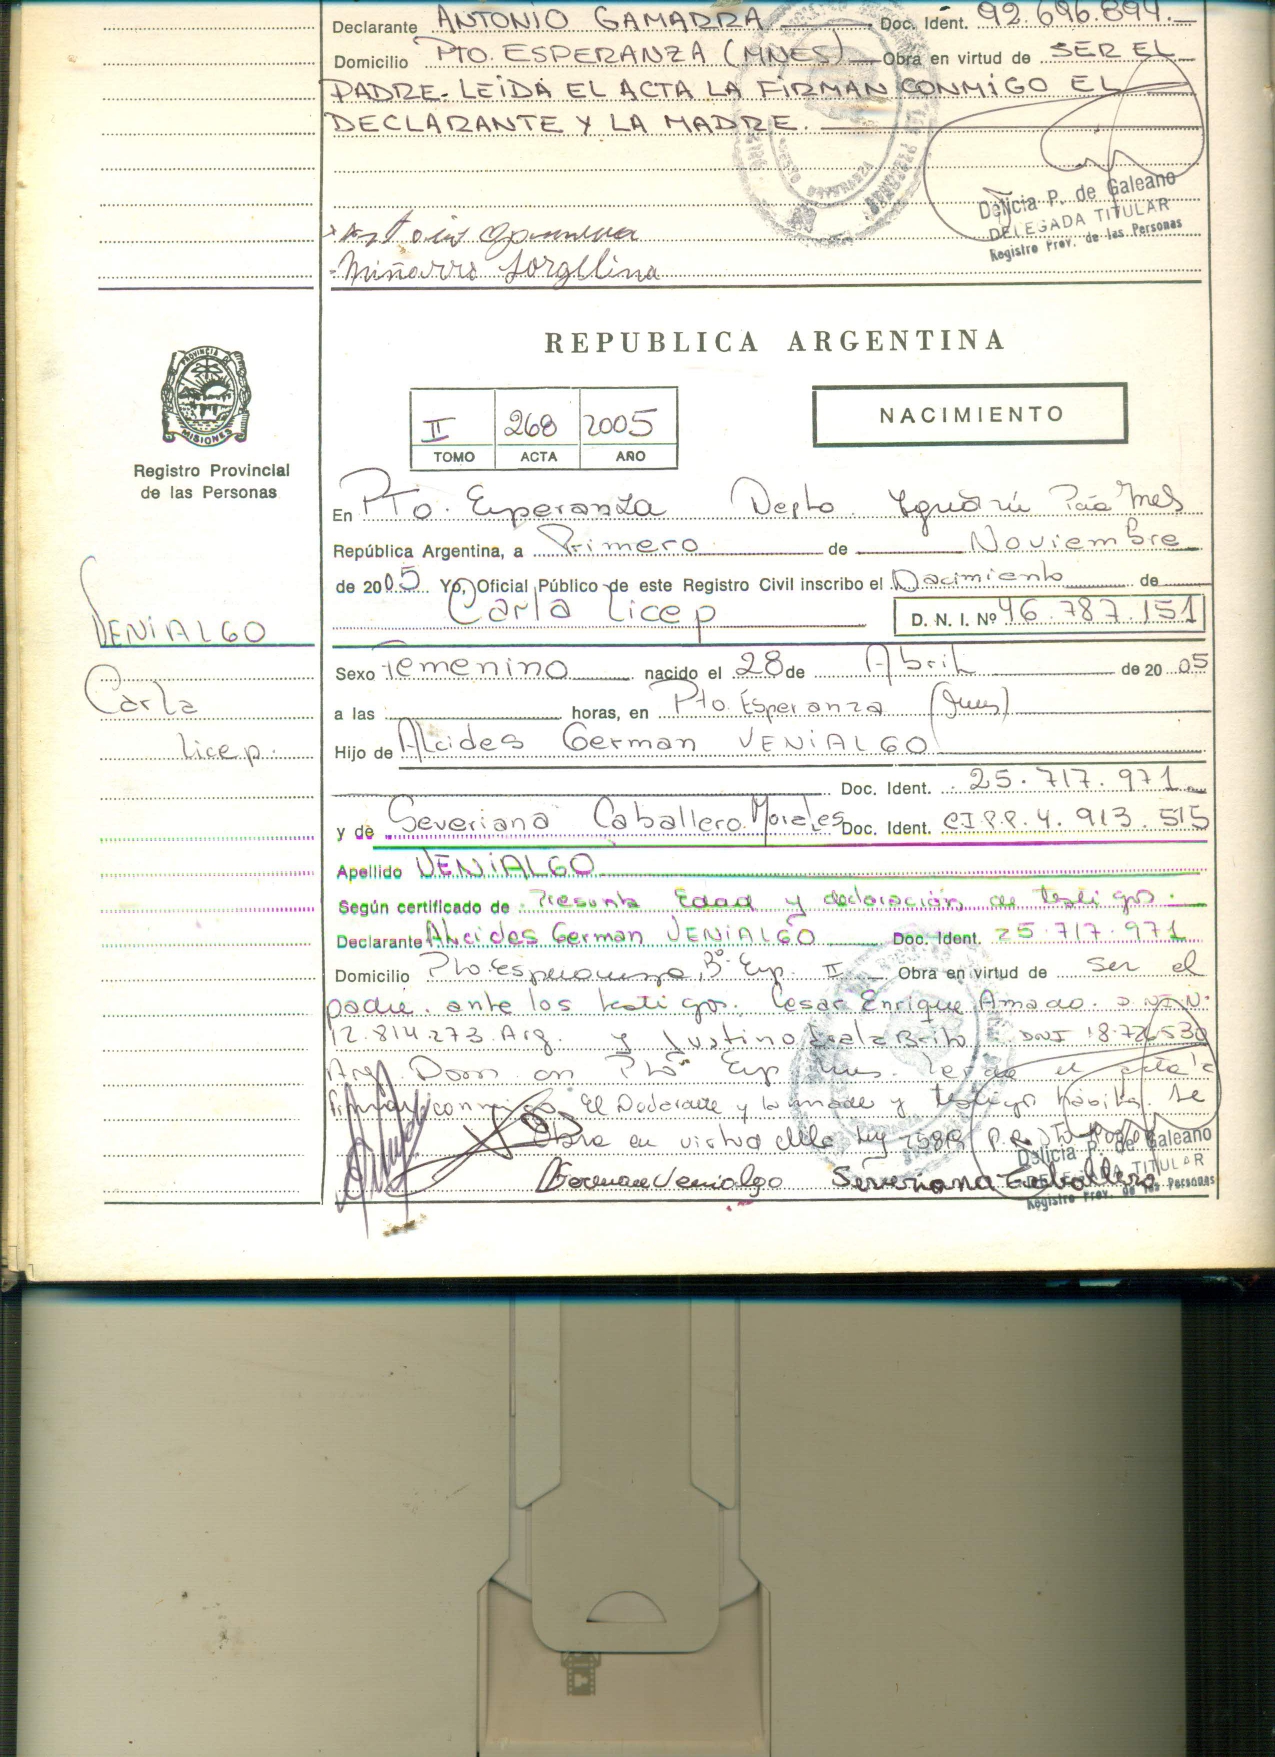 Declarante ANTONIO GAMARRA Doc. Ident. 92.696.894.
Domicilio PTO. ESPERANZA (MNES) Obra en virtud de SER EL
PADRE. LEIDA EL ACTA LA FIRMAN CONMIGO EL
DECLARANTE Y LA MADRE.
Delicia P. de Galeano
DELEGADA TITULAR
Registro Prov. de las Personas
Miñarro Jorgelina
REPUBLICA ARGENTINA
PROVINCIA DE MISIONES
Registro Provincial
de las Personas
II 268 2005
TOMO ACTA AÑO
NACIMIENTO
En Pto. Esperanza Depto. Iguazú Pcia Mnes
República Argentina, a Primero de Noviembre
de 2005. Yo, Oficial Público de este Registro Civil inscribo el Nacimiento de
Carla Licep D. N. I. Nº 46.787.151
VENIALGO
Carla
Licep.
Sexo Femenino nacido el 28 de Abril de 20 05
a las horas, en Pto. Esperanza (Mnes)
Hijo de Alcides German VENIALGO
Doc. Ident. 25.717.971
y de Severiana Caballero Morales Doc. Ident. CI.P.P. 4.913.515
Apellido VENIALGO
Según certificado de Presunta Edad y declaración de testigos.
Declarante Alcides German VENIALGO Doc. Ident. 25.717.971
Domicilio Pto. Esperanza, Bº Esp. II Obra en virtud de ser el
padre. ante los testigos. Cesar Enrique Amado. D.N.I.N.
12.814.273 Arg. y Justino Brito DNI 18.726530
Arg. Dom en Pto Esp Mnes. el acta la
firman conmigo El Declarante y la madre y testigos habiles. Se
Obra en virtud de la Ley
German Venialgo Severiana Caballero
Delicia P. de Galeano
DELEGADA TITULAR
Registro Prov. de las Personas